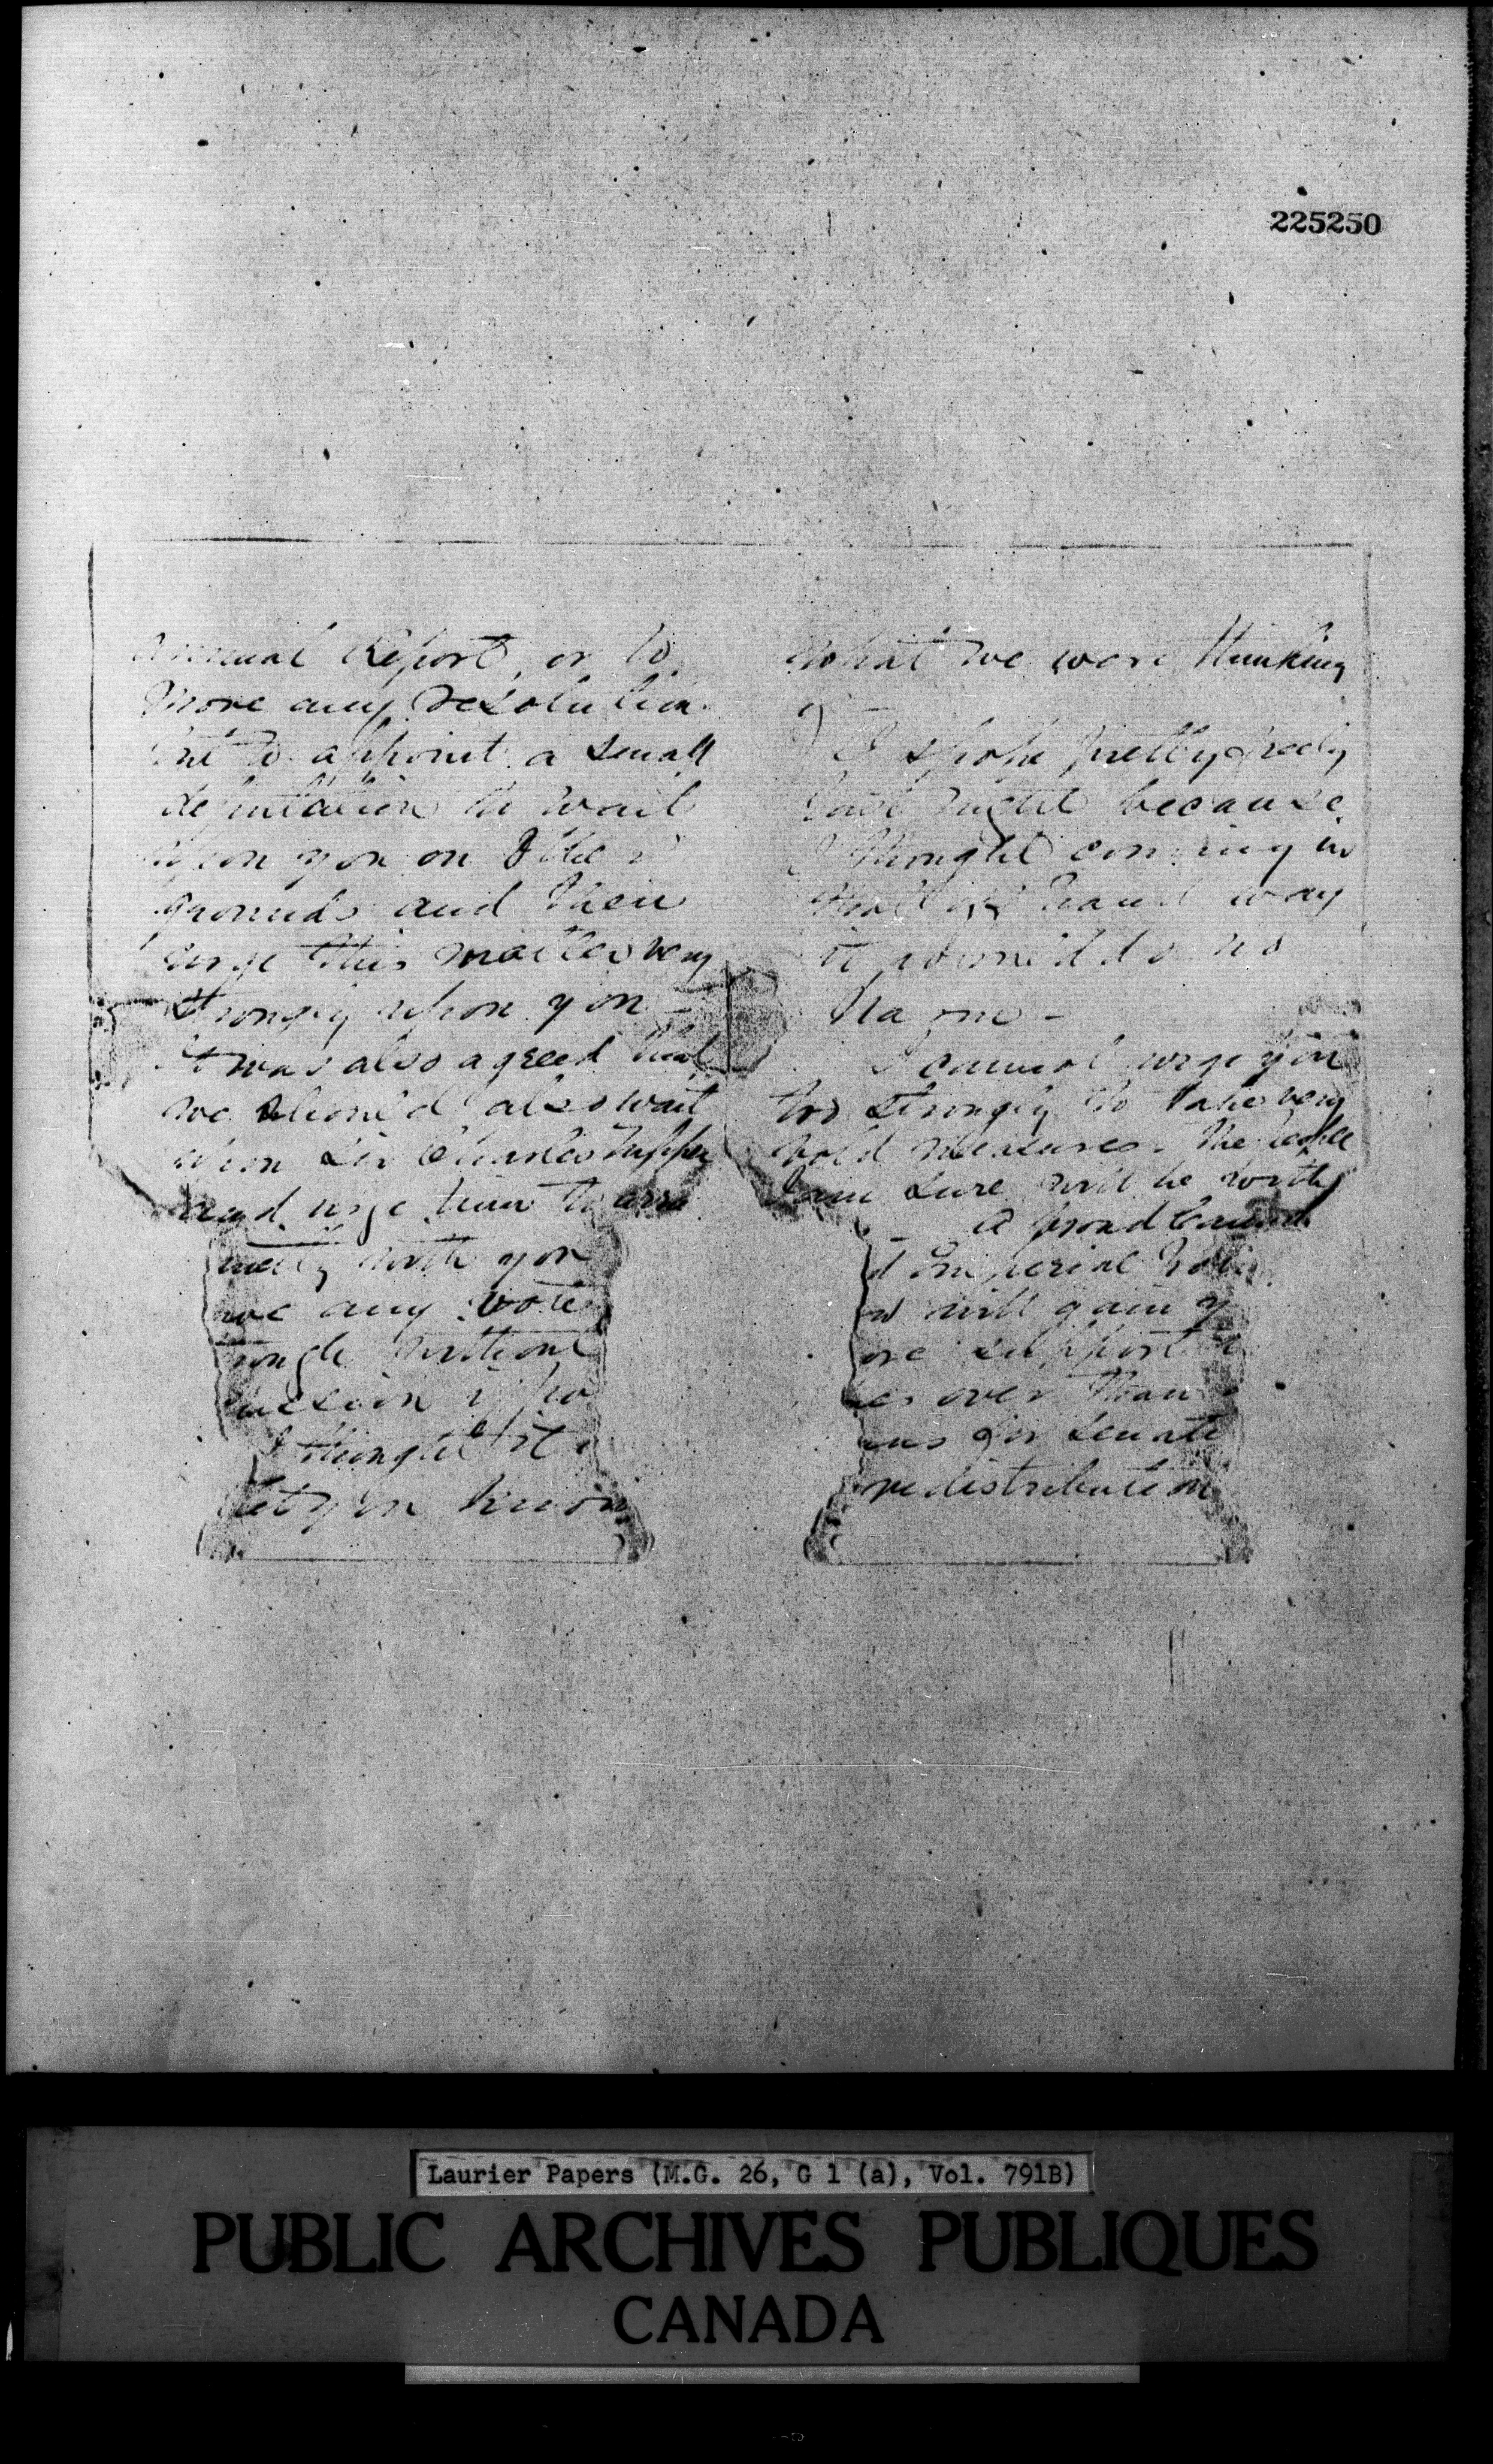 225250
Annual Report, or to
move any resolution
but to appoint a small
deputation to wait
upon you on other
grounds and then
urge this matter very
strongly upon you -
It was also agreed that
we should also wait
upon Sir Charles Tupper
and urge him to
with you
any vote
without
I thought it
let you know
what we were thinking
of
I spoke pretty freely
last night because
I thought coming in
that way
it would do no
harm -
I cannot urge you
too strongly to take very
bold measures. The people
I am sure will be with
a broad
d Imperial
will gain y
ore support
es over than
ms for Senate
redistribution
Laurier Papers (M.G. 26, G 1 (a), Vol. 791B)
PUBLIC ARCHIVES PUBLIQUES
CANADA